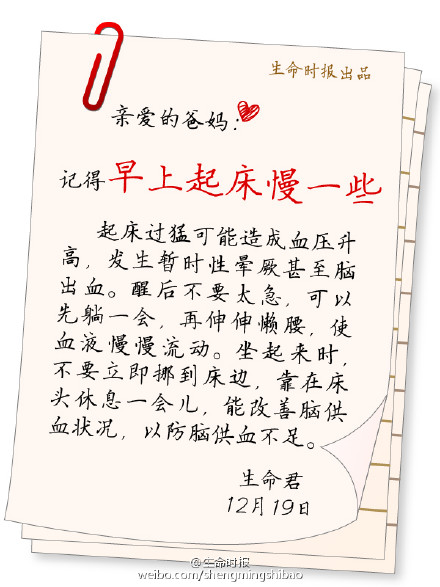 生命时报出品
亲爱的爸妈：
记得早上起床慢一些
起床过猛可能造成血压升
高，发生暂时性晕厥甚至脑
出血。醒后不要太急，可以
先躺一会，再伸伸懒腰，使
血液慢慢流动。坐起来时，
不要立即挪到床边，靠在床
头休息一会儿，能改善脑供
血状况，以防脑供血不足。
生命君
12月19日
@生命时报
weibo.com/shengmingshibao